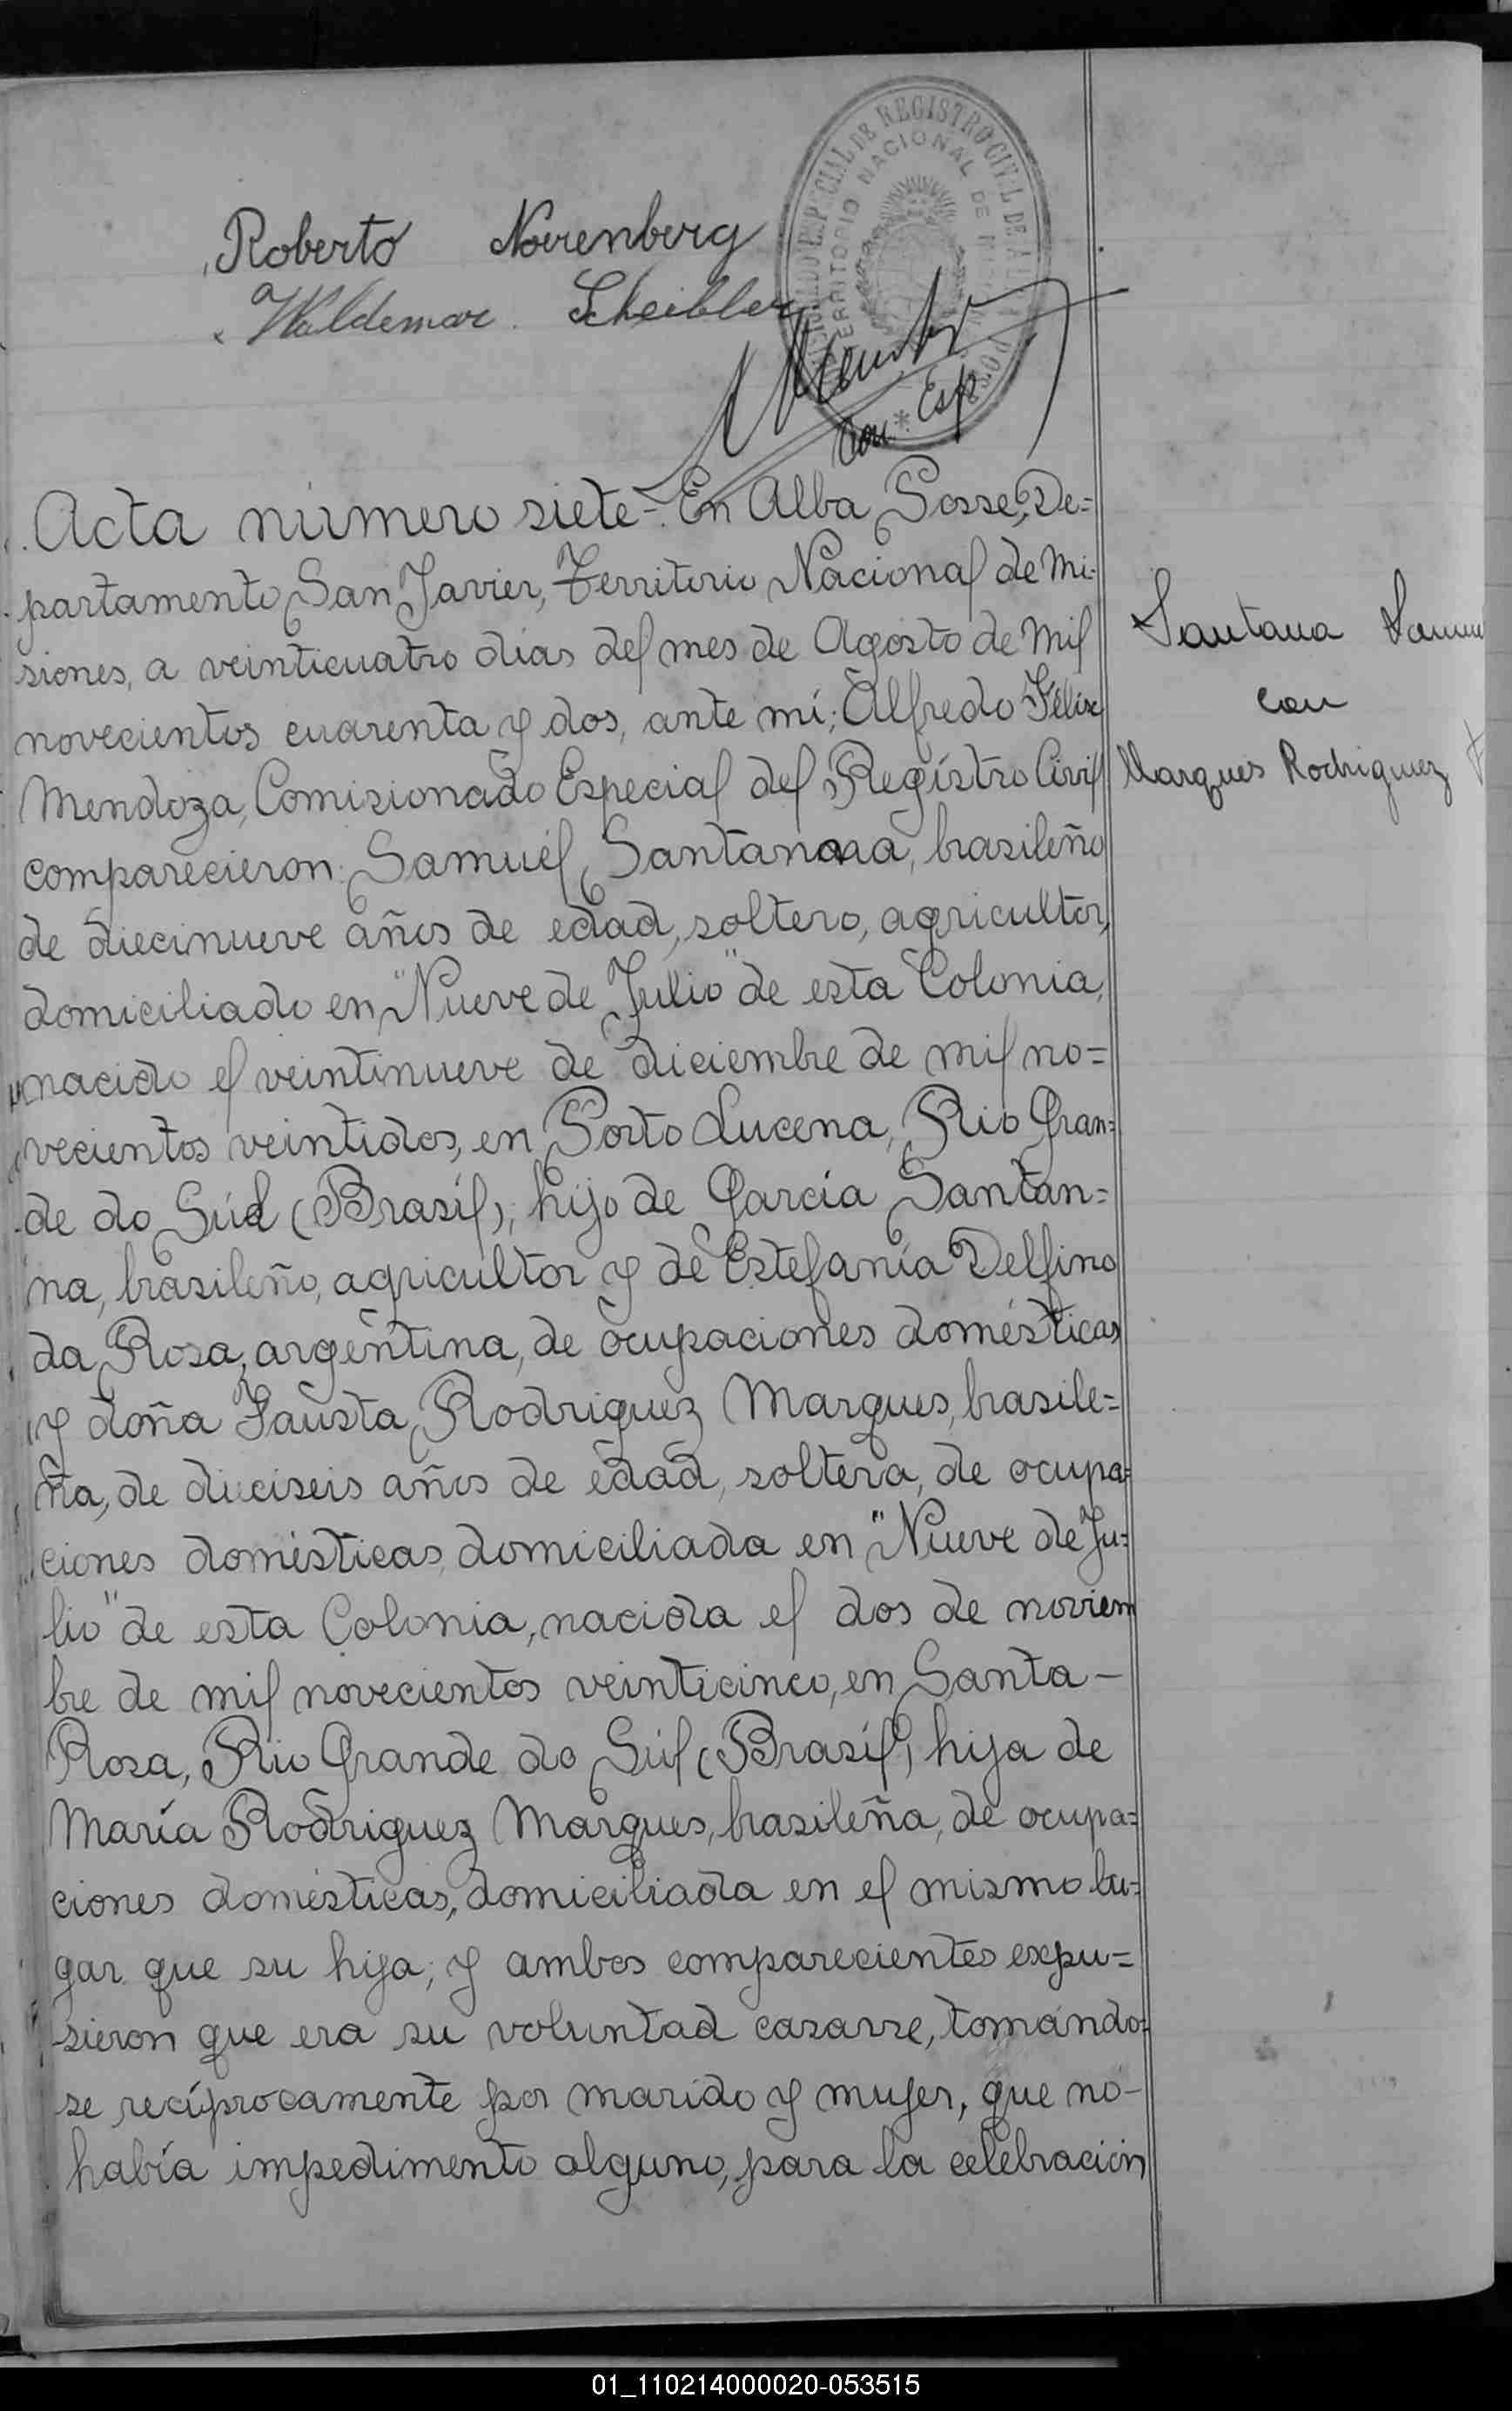 Roberto Norenberg
Waldemar Scheibler
REGISTRO CIVIL DE
TERRITORIO NACIONAL DE
Com. Esp.
Acta número siete-. En Alba Posse, De=
partamento San Javier, Territorio Nacional de Mi-
siones, a veinticuatro días del mes de Agosto de Mil
novecientos cuarenta y dos, ante mí; Alfredo Félix
Mendoza, Comisionado Especial del Regístro Civil
comparecieron: Samuél Santanana, brasileño
de diecinueve años de edad, soltero, agricultor,
domiciliado en "Nueve de Julio" de esta Colonia,
nacido el veintinueve de diciembre de mil no=
vecientos veintidos, en Porto Lucena, Rio Gran=
de do Súd (Brasíl), hijo de García Santan=
na, brasileño, agricultor y de Estefanía Delfino
da Rosa, argentina, de ocupaciones domésticas
y doña Fausta Rodriguez Marques, brasile=
ña, de dieciseis años de edad, soltera, de ocupa=
ciones domésticas, domiciliada en "Nueve de Ju=
lio" de esta Colonia, nacida el dos de noviem
bre de mil novecientos veinticinco, en Santa-
Rosa, Rio Grande do Súl (Brasíl) hija de
María Rodriguez Marques, brasileña, de ocupa=
ciones domésticas, domiciliada en el mismo lu=
gar que su hija; y ambos comparecientes expu=
sieron que era su voluntad casarse, tomándo=
se recíprocamente por marido y mujer, que no-
había impedimento alguno, para la celebración
Santana
con
Marques Rodriguez
01_110214000020-053515